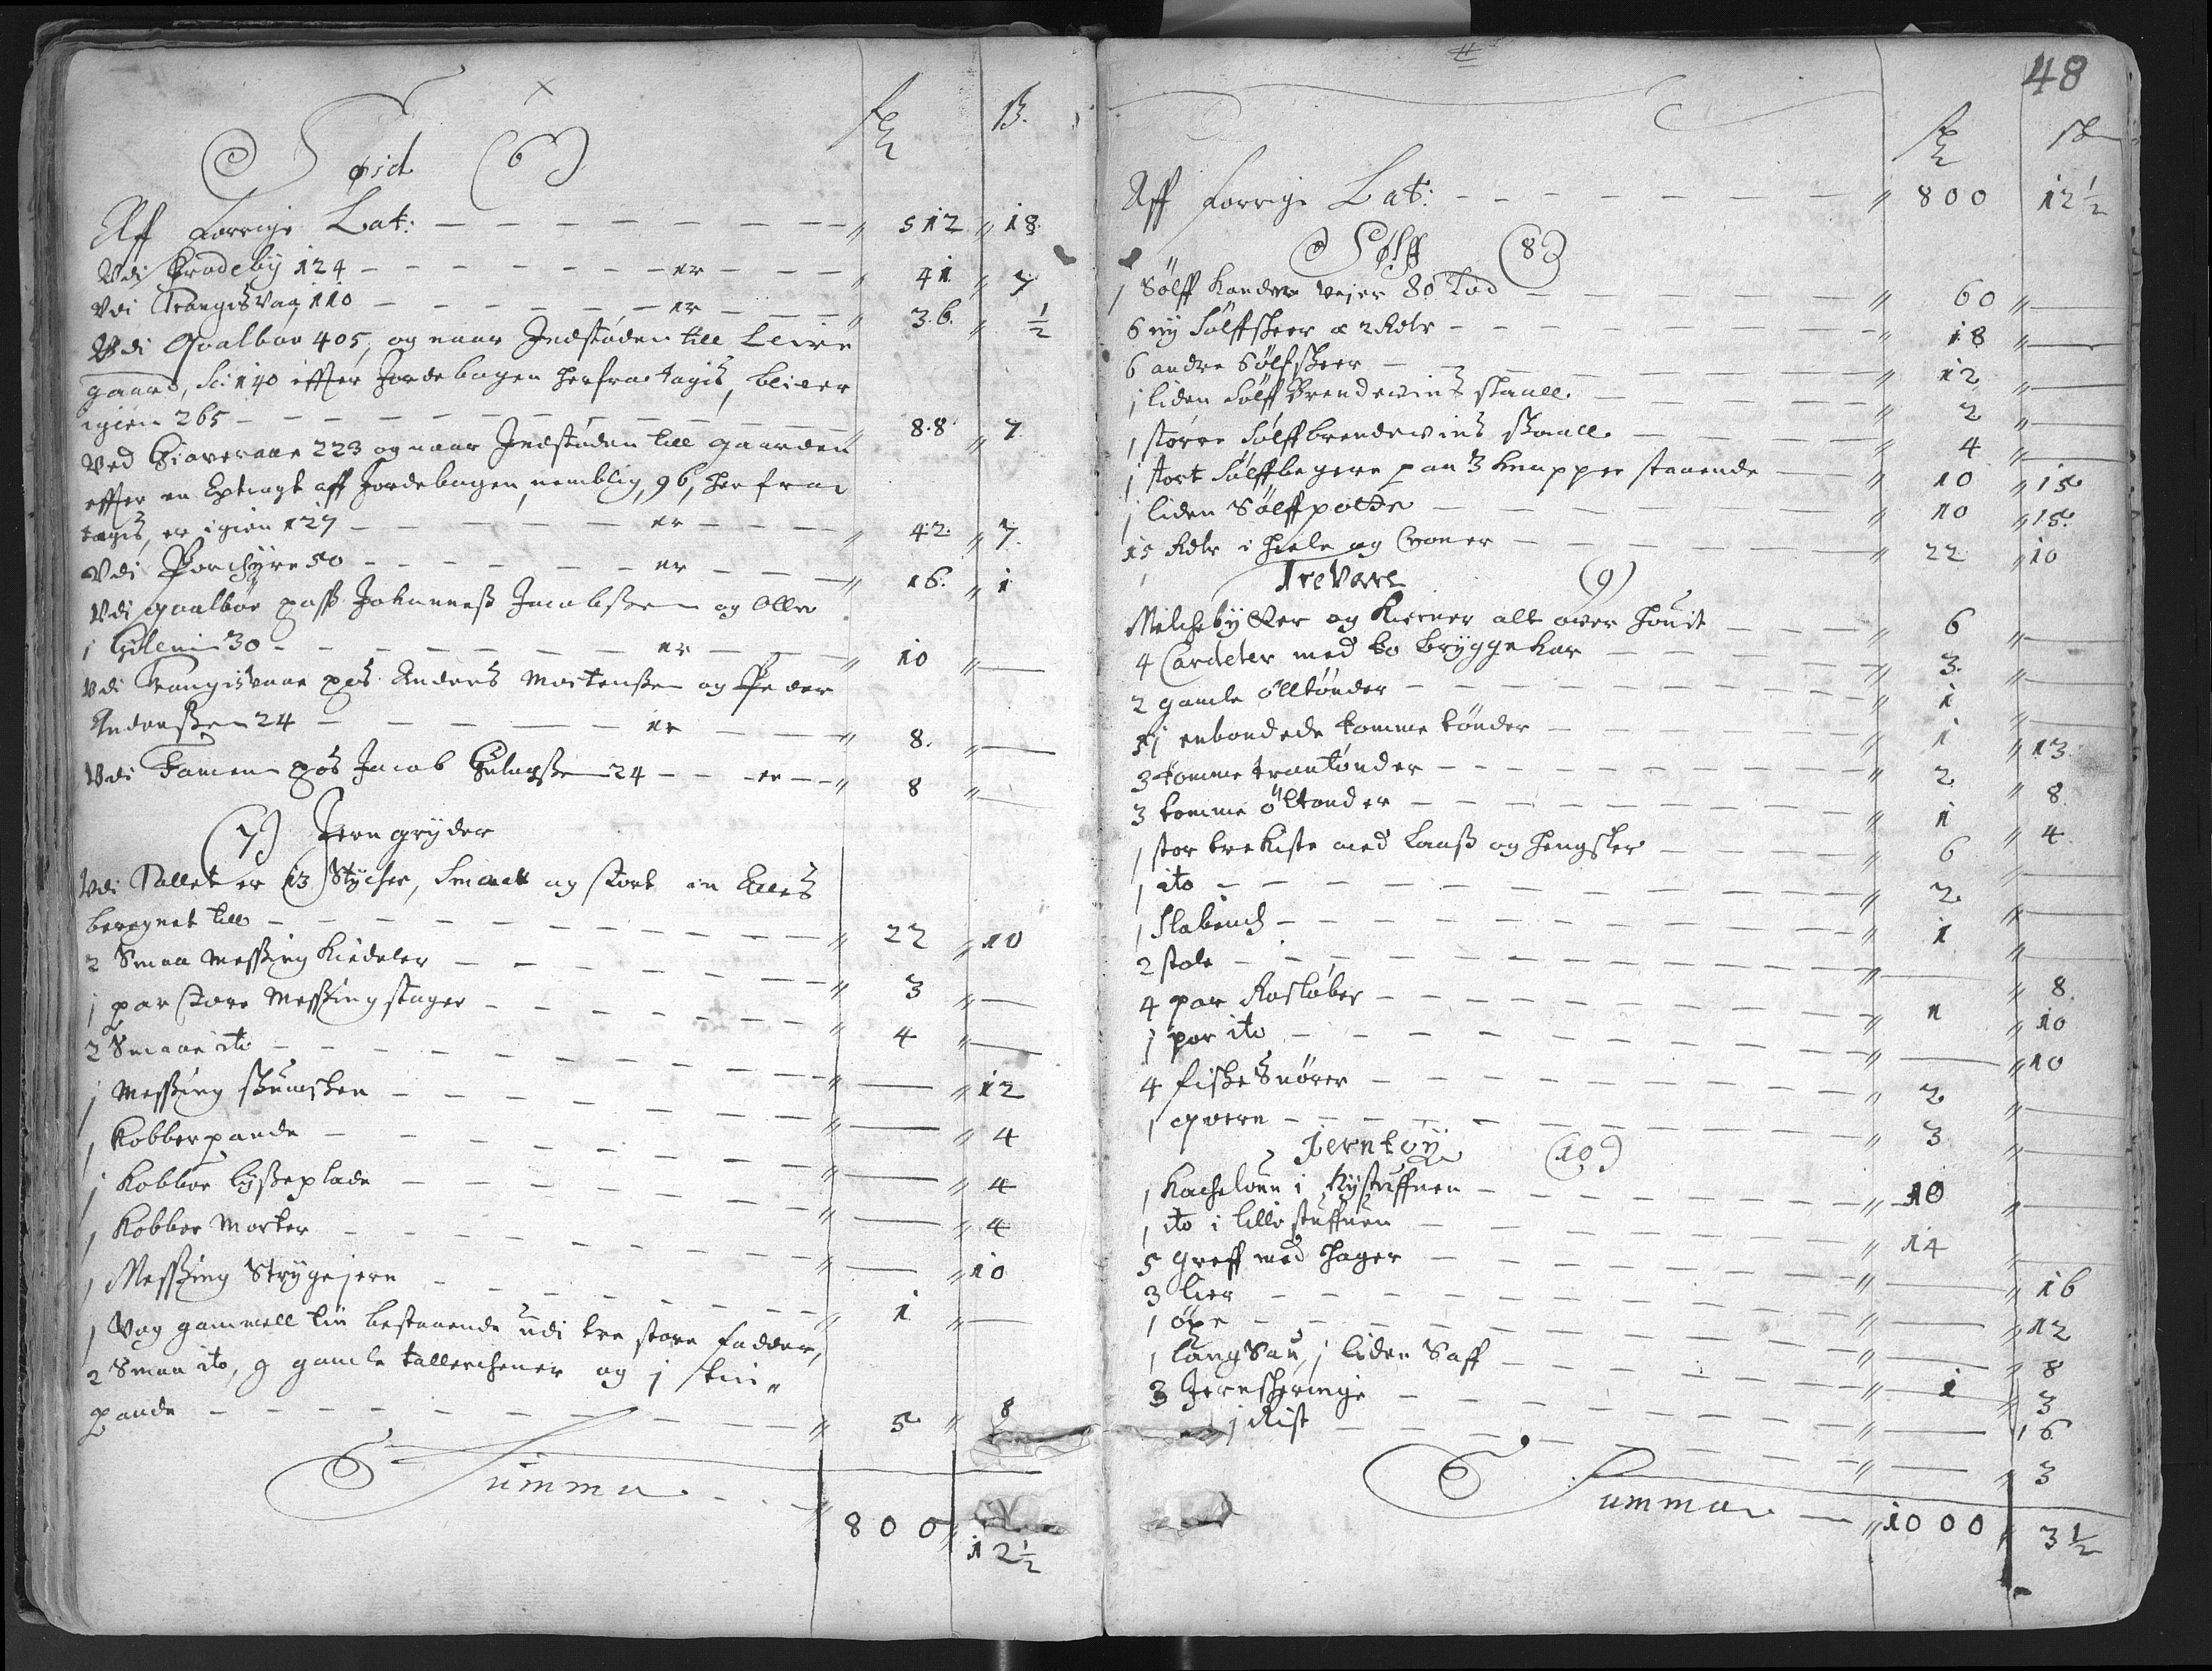 (6)
Aff Forrige Lat: 512 18
Udi Frodebÿ 124 er 41 7
Udi Trangisvaag 110 er 36 ½
Udi Qvalbøe 405, og naar Indstøden till Leire
gaard, 140 effter Jordebogen herfra tagis, blifver
igien 265 88 7
Ved 223 og naar Indstøden till gaarden
effter en Extragt aff Jordebogen, nemblig, 96, herfra
tagis, er igien 127 er 42 7
Udi Porchÿre 50 er 16 1
Udi qvalbøe Johanneß Jacobßen og Olle
i 30 er 10
Udi Trangisvaae Anders Mortenßen og Peder
Anderßen 24 er 8
Udi Famien Jacob 24 er 8
(7) Jern grÿder
Udi Tallet er 13 Stÿcher, Smaat og stort
beregnet till 22 10
2 Smaa Messing Kiedeler 3
1 par store Messing stager 4
2 Smaae ito 12
1 Messing skumskee 4
1 Kobberpande 4
1 Kobber lÿseplade 4
1 Kobber Morter 10
1 Messing Strÿgejern 1
1 Vog gammell tin bestaaende udi tre store fadder,
2 Smaa ito, 9 gamle tallerchener og 1
pande 5 8
Summa 800 12½
48
Aff Forrige Lat: 800 12½
Sølff (8)
1 Sølff Kande vejer 80 Lod 60
6 nÿ Sølffskeer a 2 Rdlr 18
6 andre Sølfskeer 12
1 liden Sølff Brendevins skaall 2
1 større Sølffbrendevins skaall 4
1 stort Sølffbegere paa 3 knapper staaende 10 15
1 liden Sølffpotde 10 15
15 Rdlr i heele og Croner 22 10
TreVare (9)
Milchebÿtter og Kierner alt over houit 6
4 Cardeler med to brÿggekar 3
2 gamle ölltönder 1
enbondede tomme tönder 1 13
3 tomme trantønder 2 8
3 tomme öltønder 1 4
1 stor trekiste med Laaß og hengsler 6
1 ito 2
1 Slabench 1
2 stole 8
4 par Rosløber 1 10
1 par ito 10
4 fiske Snører 2
1 qvern 3
Jerntöÿ (10)
1 Kachelovn i Rÿstuffuen 10
1 ito i lille stuffuen 14
5 Greff med hager 16
3 lier 12
1 öxe 8
1 lang Sau, 1 liden Saff 1 3
3 Jern 6
1 Rist 3
Summa 1000 3½